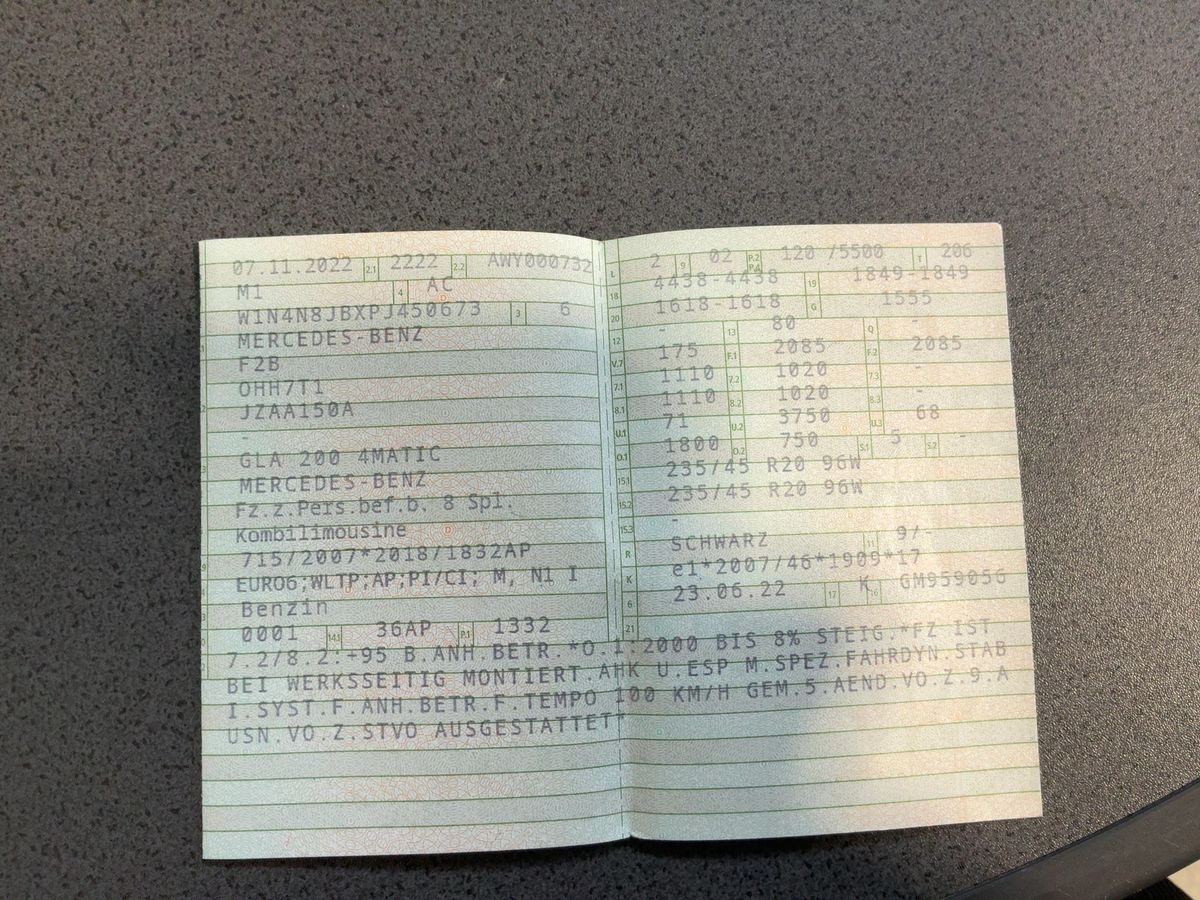 07.11.2022 2.1 2222 2.2 AWY000732
M1 4 AC
W1N4N8JBXPJ450673 3 6
MERCEDES-BENZ
F2B
OHH7T1
JZAA150A
-
GLA 200 4MATIC
MERCEDES-BENZ
Fz.z.Pers.bef.b. 8 Spl.
Kombilimousine
715/2007*2018/1832AP
EURO6;WLTP;AP;PI/CI; M, N1 I
Benzin
0001 14.1 36AP P.1 1332
L 2 9 02 P.2 P.4 120 /5500 T 206
18 4438-4438 19 1849-1849
20 1618-1618 G 1555
12 - 13 80 Q -
V.7 175 F.1 2085 F.2 2085
7.1 1110 7.2 1020 7.3 -
8.1 1110 8.2 1020 8.3 -
U.1 71 U.2 3750 U.3 68
O.1 1800 O.2 750 S.1 5 S.2 -
15.1 235/45 R20 96W
15.2 235/45 R20 96W
15.3 -
R SCHWARZ 11 9/-
K e1*2007/46*1909*17
6 23.06.22 17 K 16 GM959056
21
7.2/8.2:+95 B.ANH.BETR.*O.1:2000 BIS 8% STEIG.*FZ IST
BEI WERKSSEITIG MONTIERT.AHK U.ESP M.SPEZ.FAHRDYN.STAB
I.SYST.F.ANH.BETR.F.TEMPO 100 KM/H GEM.5.AEND.VO.Z.9.A
USN.VO.Z.STVO AUSGESTATTET*